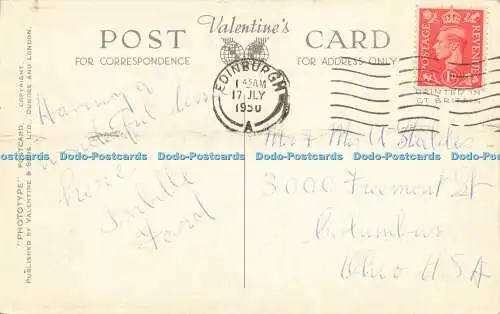 Valentine's
POST CARD
FOR CORRESPONDENCE
FOR ADDRESS ONLY
EDINBURGH
1 45AM
17 JLY
1950
A
POSTAGE
REVENUE
1D
PRINTED IN
GT BRITAIN
"PHOTOTYPE" POSTCARD. COPYRIGHT.
PUBLISHED BY VALENTINE & SONS, LTD., DUNDEE AND LONDON.
Having a
wonderful time
here
Isabelle
Ford
Mr & Mrs A
3000 Freemont St
Columbus
Ohio USA
Dodo-Postcards Dodo-Postcards Dodo-Postcards Dodo-Postcards Dodo-Postcards
Dodo-Postcards Dodo-Postcards Dodo-Postcards Dodo-Postcards Dodo-Postcards